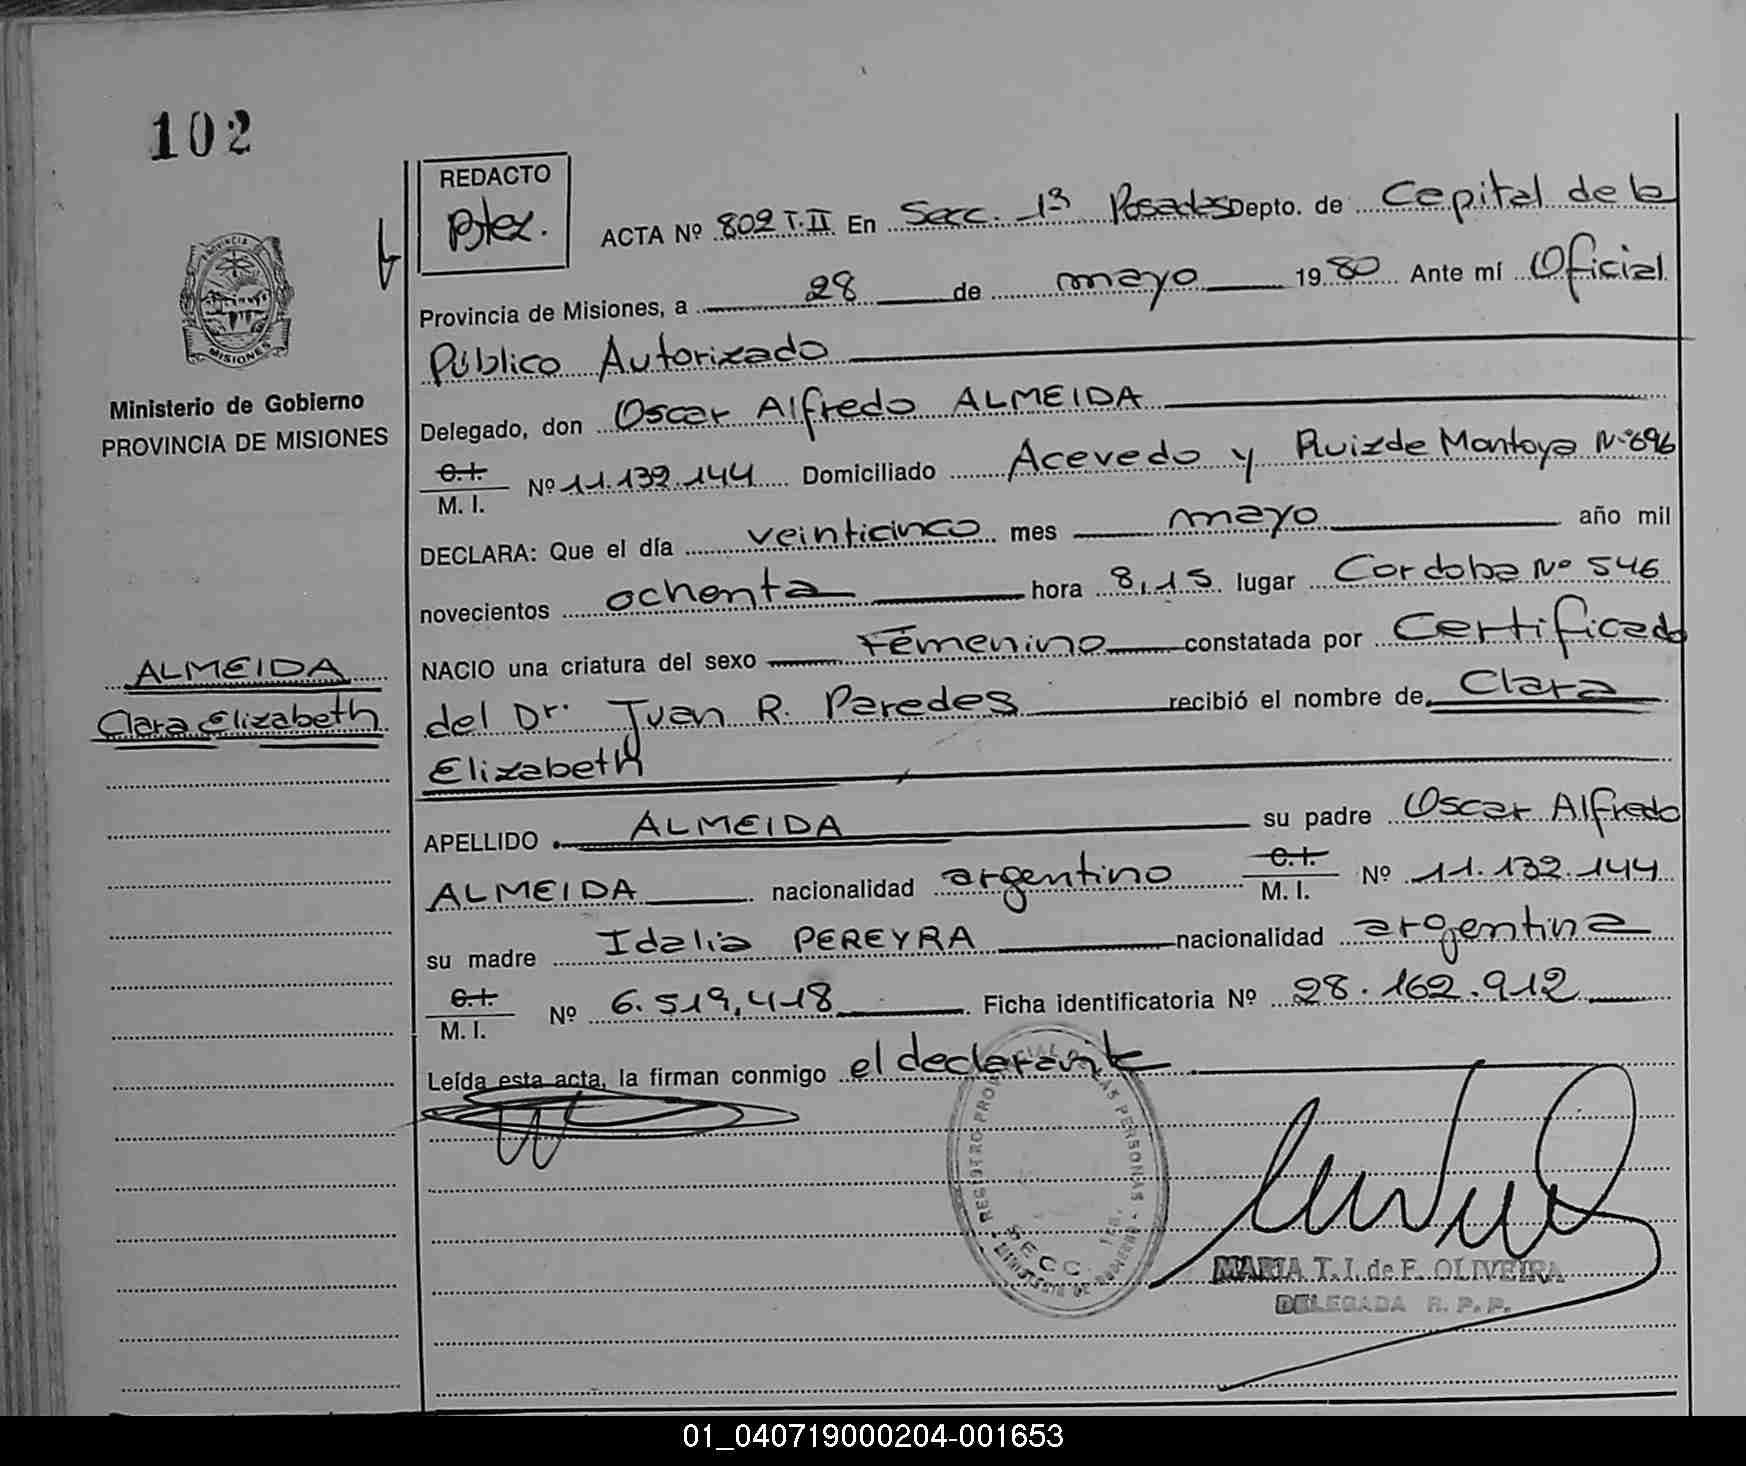 102
REDACTO
ACTA Nº 802 T.II En Secc. 13 Posadas Depto. de Capital de la
PROVINCIA DE
MISIONES
Provincia de Misiones, a 28 de mayo 1980 Ante mí Oficial
Público Autorizado
Ministerio de Gobierno
PROVINCIA DE MISIONES
Delegado, don Oscar Alfredo ALMEIDA
C.I. M. I. Nº 11.132.144 Domiciliado Acevedo y Ruiz de Montoya Nº 696
DECLARA: Que el día veinticinco mes mayo año mil
novecientos ochenta hora 8,15 lugar Cordoba Nº 546
NACIO una criatura del sexo Femenino constatada por Certificado
ALMEIDA
Clara Elizabeth
del Dr. Juan R. Paredes recibió el nombre de Clara
Elizabeth
APELLIDO ALMEIDA su padre Oscar Alfredo
ALMEIDA nacionalidad argentino C.I. M. I. Nº 11.132.144
su madre Idalia PEREYRA nacionalidad argentina
C.I. M. I. Nº 6.519,418 Ficha identificatoria Nº 28.162.912
Leída esta acta, la firman conmigo el declarante
REGISTRO PROVINCIAL DE LAS PERSONAS
SECC.
MINISTERIO DE GOBIERNO
MARIA T. I. de F. OLIVEIRA
DELEGADA R. P. P.
01_040719000204-001653